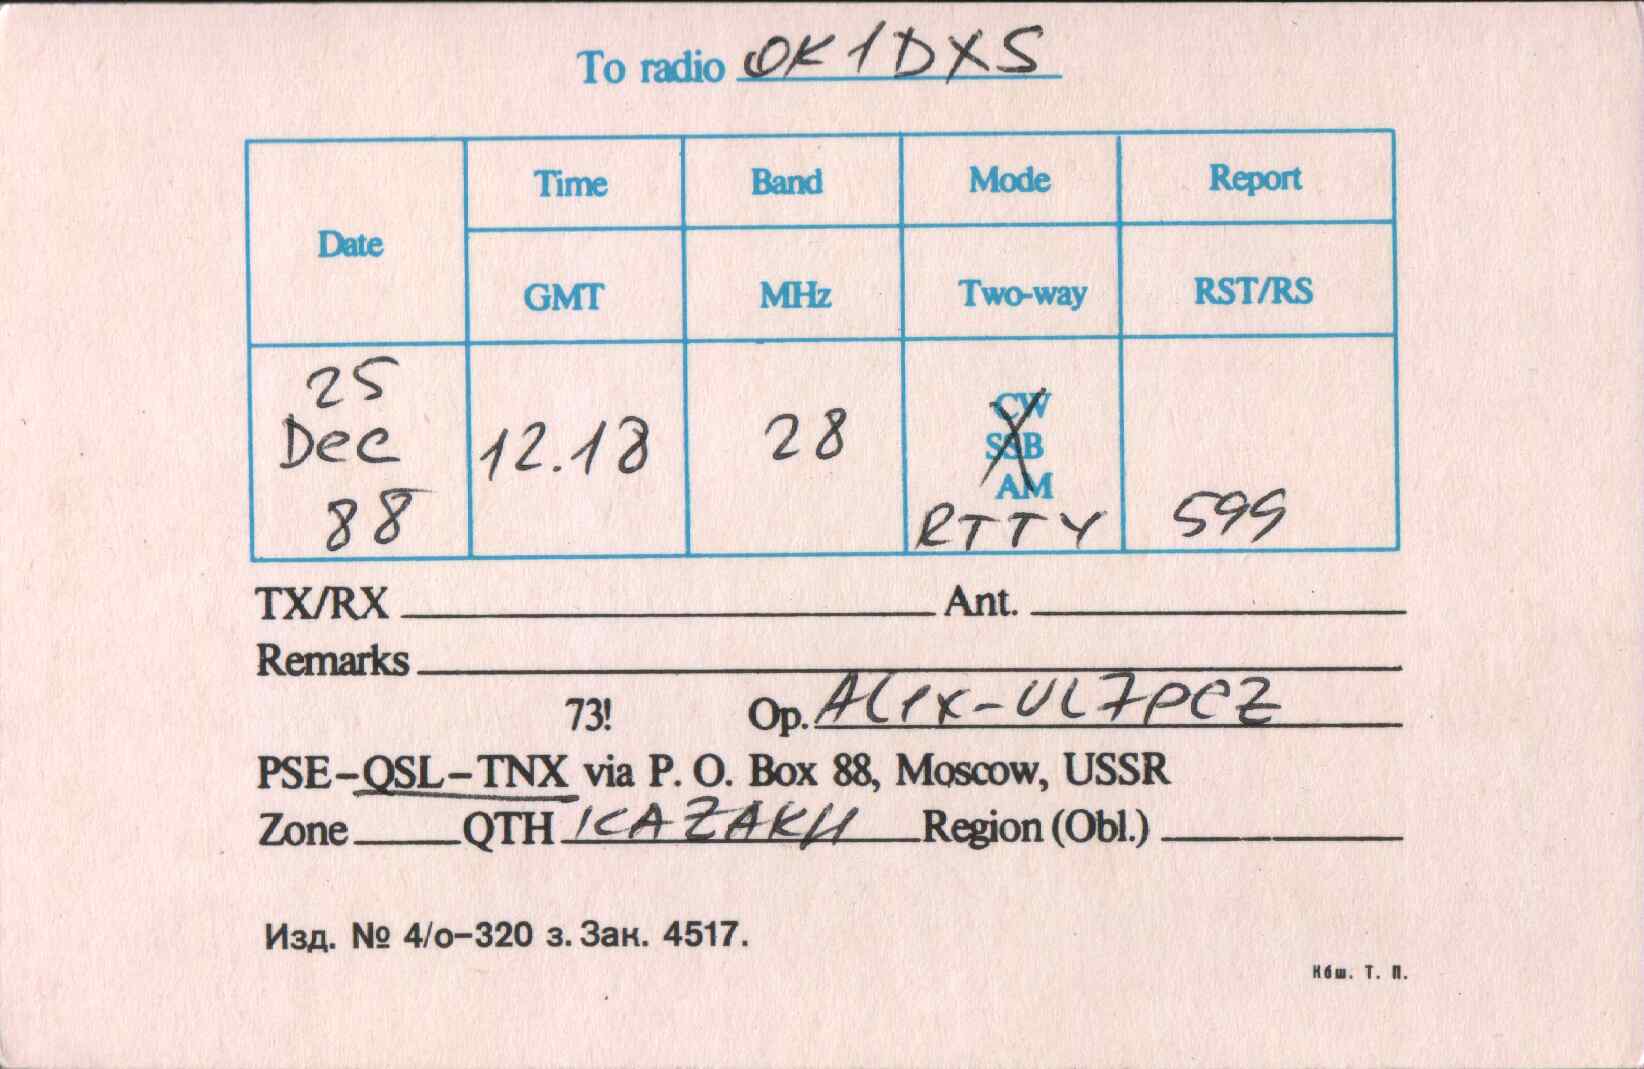 To radio OK1DXS
Date Time Band Mode Report
GMT MHz Two-way RST/RS
25 Dec 88 12.18 28 CW SSB AM RTTY 599
TX/RX Ant.
Remarks
73! Op. Alex-UL7PCZ
PSE-QSL-TNX via P. O. Box 88, Moscow, USSR
Zone QTH KAZAKH Region (Obl.)
Изд. № 4/о-320 з. Зак. 4517.
Кбш. Т. П.